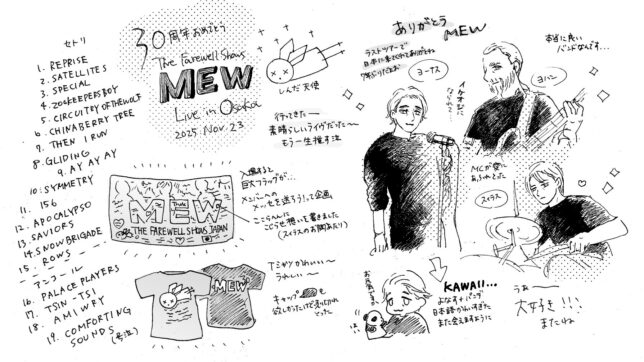 セトリ
1. REPRISE
2. SATELLITES
3. SPECIAL
4. ZOOKEEPERS BOY
5. CIRCUITRY OF THE WOLF
6. CHINABERRY TREE
7. THEN I RUN
8. GLIDING
9. AY AY AY
10. SYMMETRY
11. 156
12. APOCALYPSO
13. SAVIORS
14. SNOW BRIGADE
15. ROWS
アンコール
16. PALACE PLAYERS
17. TSIN-TSI
18. AM I WRY
19. COMFORTING
SOUNDS
(号泣)
30周年おめでとう
The Farewell Shows
MEW
Live in Osaka
2025 Nov. 23
しんだ天使
行ってきたー
素晴らしいライヴだった〜
もう一生推す法
MEW
THE FAREWELL SHOWS JAPAN
入場すると
巨大フラッグが…
メンバーへの
を送ろう!って企画
ここらへんに
書きました
Tシャツかわいい〜
うれしい〜
MEW
キャップも
欲しかったけど売り切れ
とった
ありがとう
MEW
ラストツアーで
日本に来てくれてありがとね
ヨーナス
イケオジに
なられて
本当に良い
バンドなんです…
ヨハン
MCが愛に
あふれとった
スィラス
お見送り
はい
KAWAII...
よなす+パンダ
日本語かわいすぎた
また会えますように
うぁ〜
大好き!!!
またね